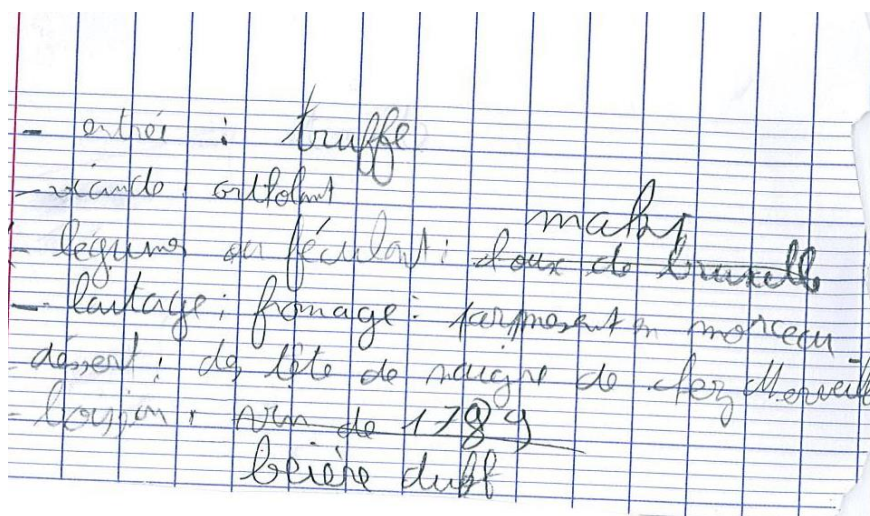 - entréi : truffe
- viande : ortolant
mahs
- légumes ou féculant : choux de bruxelle
- laitage ; fromage : parmesent en morceau
- déssert : des tête de naigre de chez Merveille
- boisson : vin de 1789
beière duff